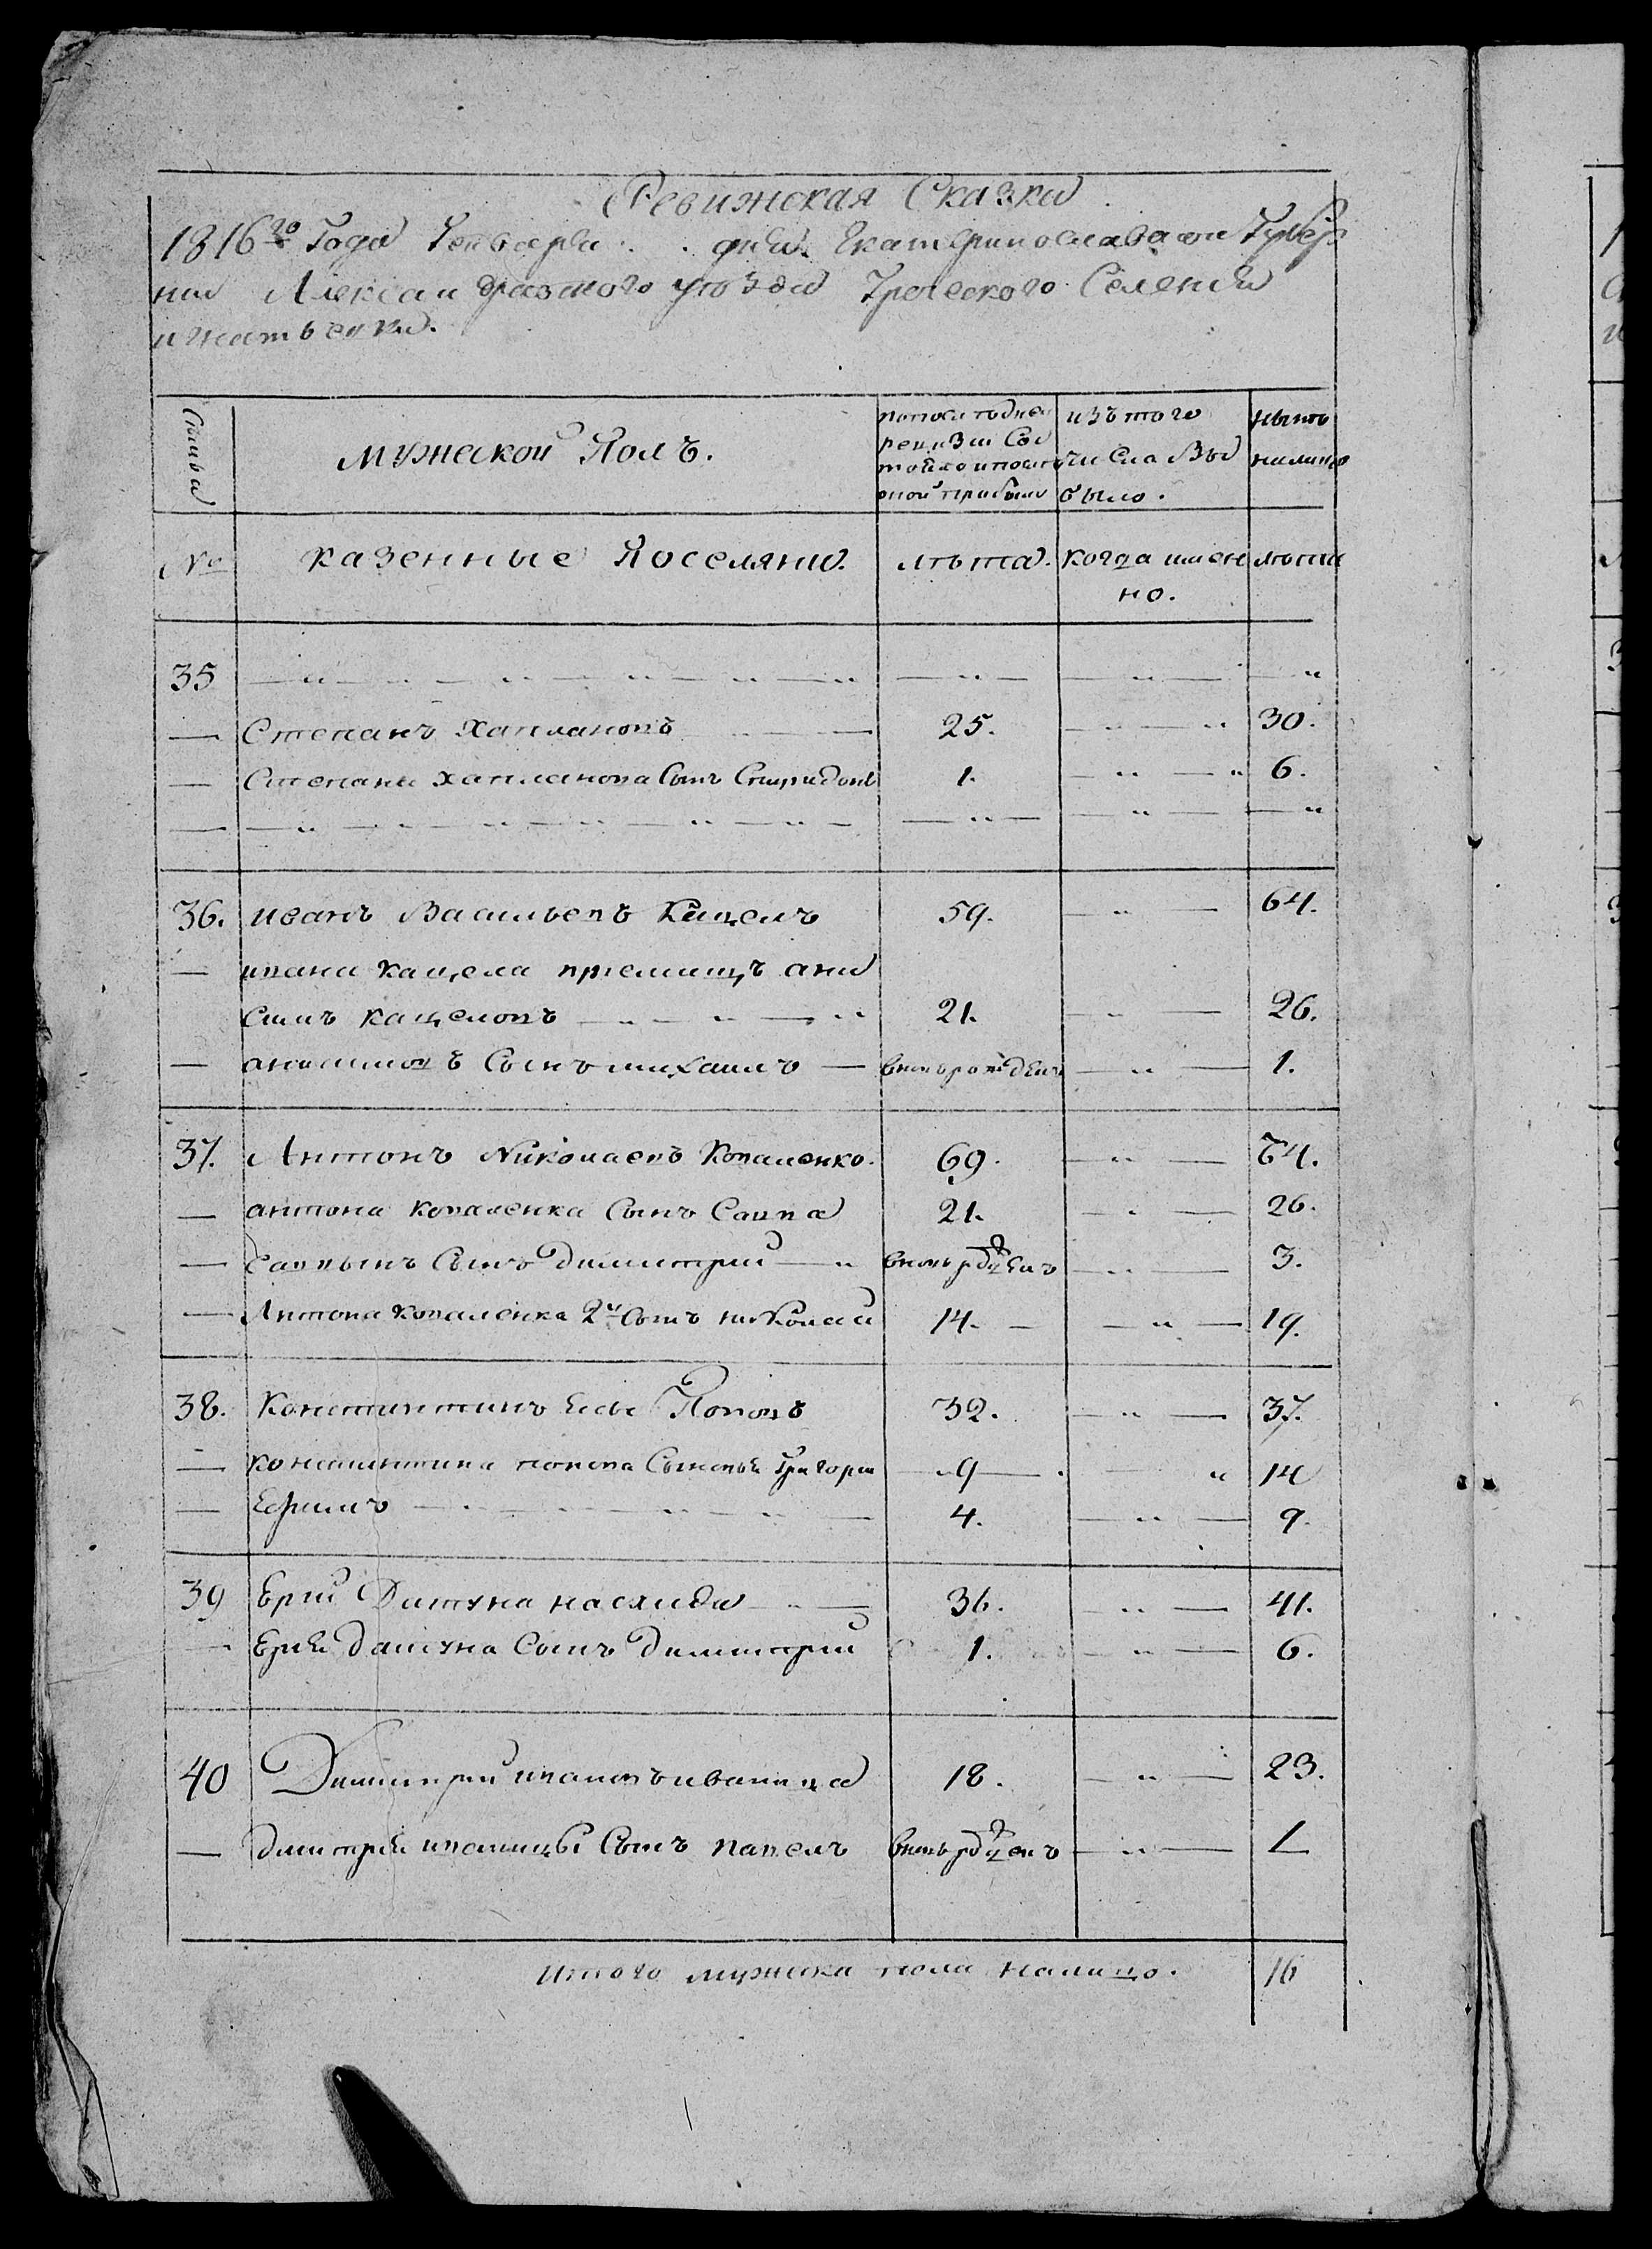 Ревижская Сказка
1816го Года Генваря . . дня. Екатеринославской Губер
нии Александровского уезда Греческого Селения
игнатьевки.
Семьи
мужеской Полъ.
попоследней ревизии Состояло и после оной прибыло
изъ того числа Выбыло.
ныне налицо
№
казенные Поселяне.
лѣта.
когда именно.
лѣта
35
— Степанъ Хапланопъ 25. — „ — 30.
— Степана Хапланопа Сынъ Спиридонъ 1. — „ — „ 6.
36. иванъ Васильепъ Кацелъ 59. — „ — 64.
— ипана кацела премишъ ани
симъ кацелопъ — „ — „ — „ 21. — „ — 26.
— анисимопъ Сынъ михаилъ — вновьрожденъ — „ — 1.
37. Антонъ Николаепъ Копаленко. 69. — „ — 74.
— антона копаленка Сынъ Саппа 21. — „ — 26.
— Саппынъ Сынъ Димитрий — „ вновьрожденъ — „ — 3.
— Антона копаленка 2й Сынъ николай 14. — — „ — 19.
38. Константинъ Попопъ 32. — „ — 37.
— константина попопа Сынопья Григори — „ 9 — „ 14
— Ефимъ 4. — „ — 9.
39 Ерий Датуна насхида — „ — 36. — „ — 41.
— Ерия датуна Сынъ Димитрий 1. — „ — 6.
40 Димитрий ипанопъ иваница 18. — „ — 23.
— димитрия ипаницы Сынъ папелъ вновьрожденъ — „ — 1
Итого мужеска пола налицо. 16